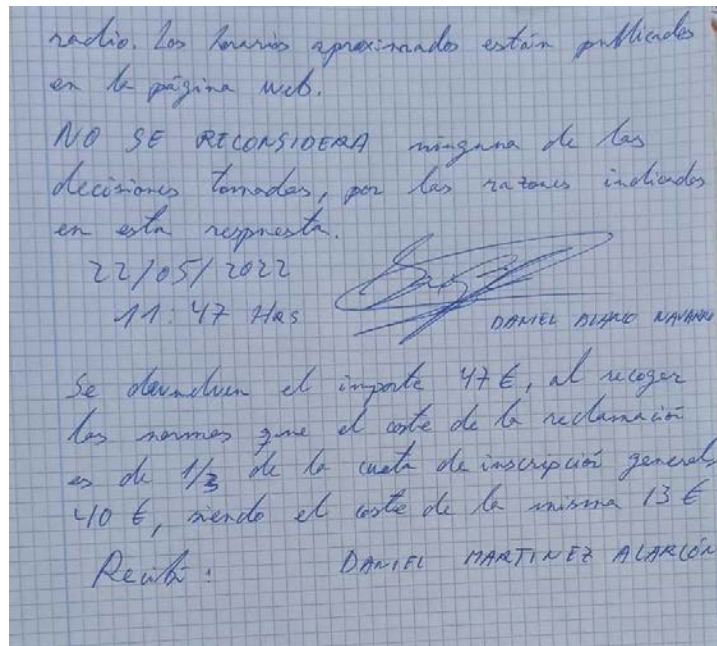 radio. Los horarios aproximados están publicados
en la página web.
NO SE RECONSIDERA ninguna de las
decisiones tomadas, por las razones indicadas
en esta respuesta.
22/05/2022
11:47 HRS
DANIEL ALAMO NAVARRO
Se devuelven el importe 47 €, al recoger
las normas que el coste de la reclamación
es de 1/3 de la cuota de inscripción general
40 €, siendo el coste de la misma 13 €
Recibí:
DANIEL MARTINEZ ALARCÓN